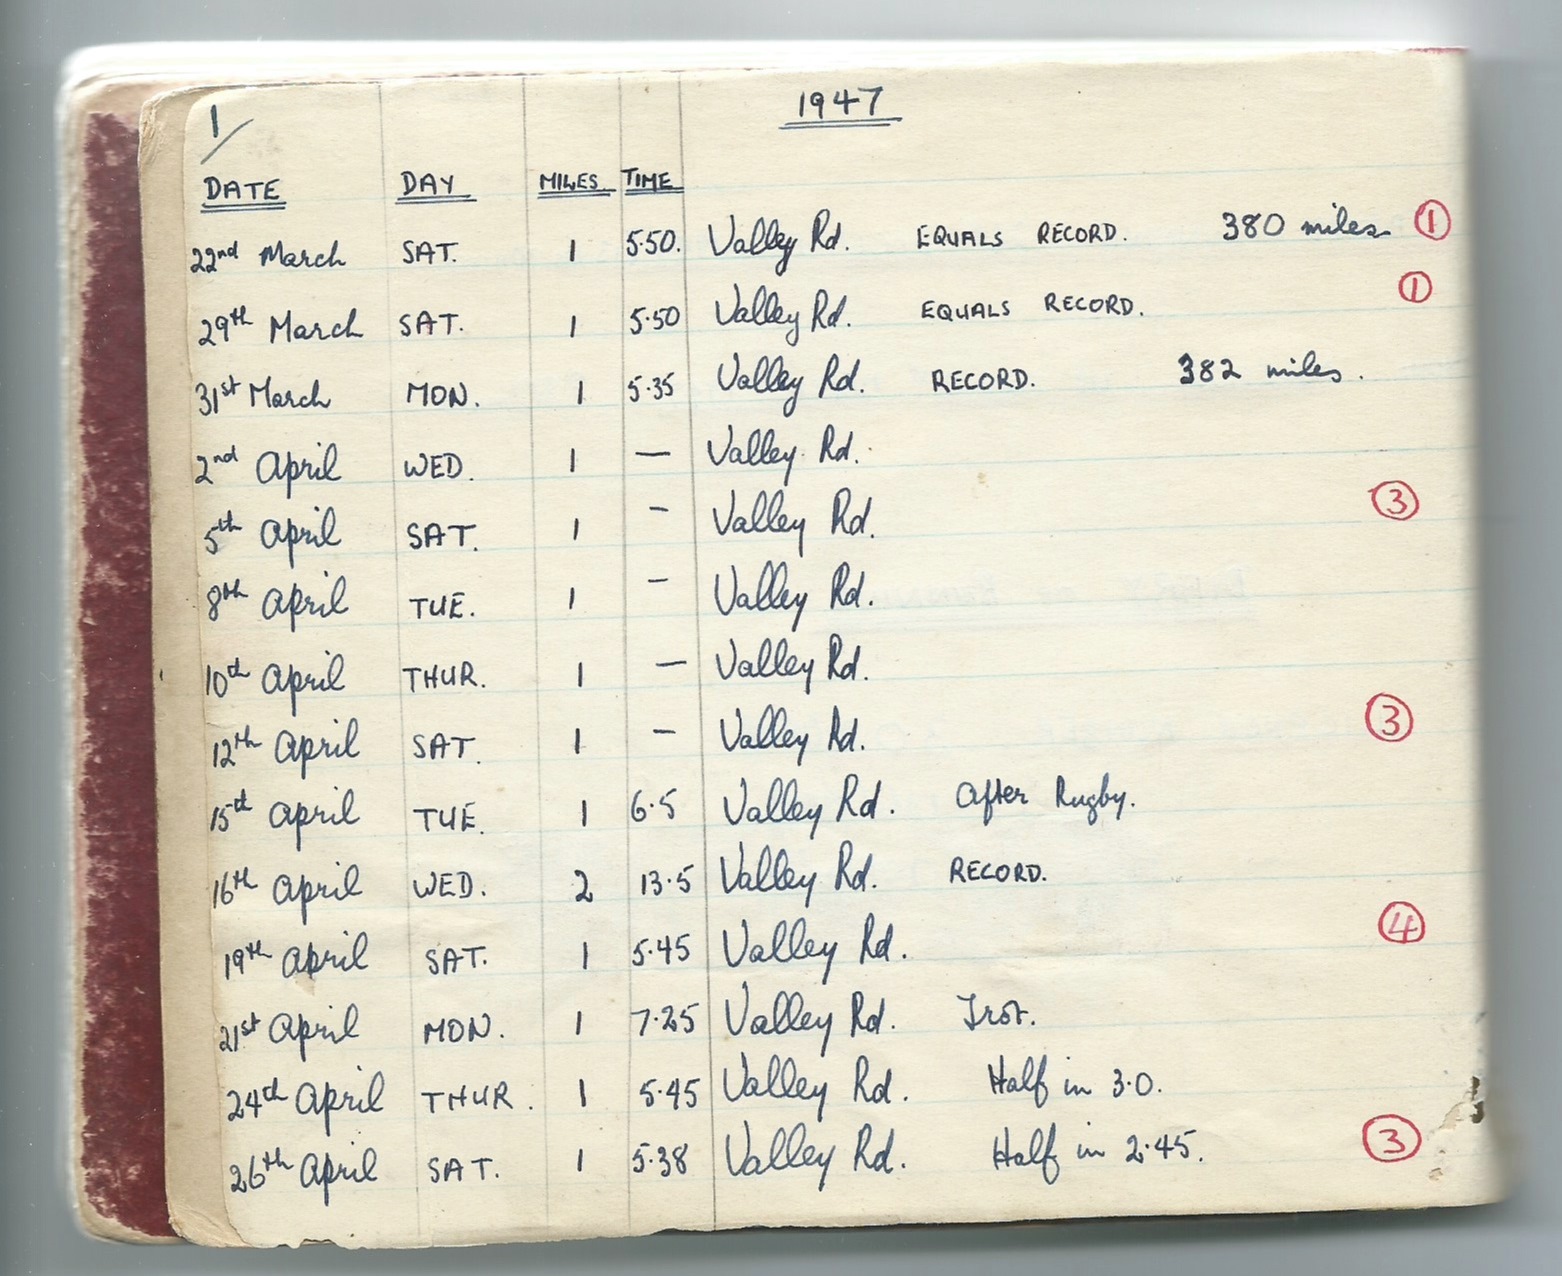 1/ 1947
DATE DAY MILES TIME
22nd March SAT. 1 5.50. Valley Rd. EQUALS RECORD. 380 miles 1
29th March SAT. 1 5.50 Valley Rd. EQUALS RECORD. 1
31st March MON. 1 5.35 Valley Rd. RECORD. 382 miles.
2nd April WED. 1 — Valley Rd.
5th April SAT. 1 – Valley Rd. 3
8th April TUE. 1 – Valley Rd.
10th April THUR. 1 — Valley Rd.
12th April SAT. 1 – Valley Rd. 3
15th April TUE. 1 6.5 Valley Rd. After Rugby.
16th April WED. 2 13.5 Valley Rd. RECORD.
19th April SAT. 1 5.45 Valley Rd. 4
21st April MON. 1 7.25 Valley Rd. Trot.
24th April THUR. 1 5.45 Valley Rd. Half in 3.0.
26th April SAT. 1 5.38 Valley Rd. Half in 2.45. 3